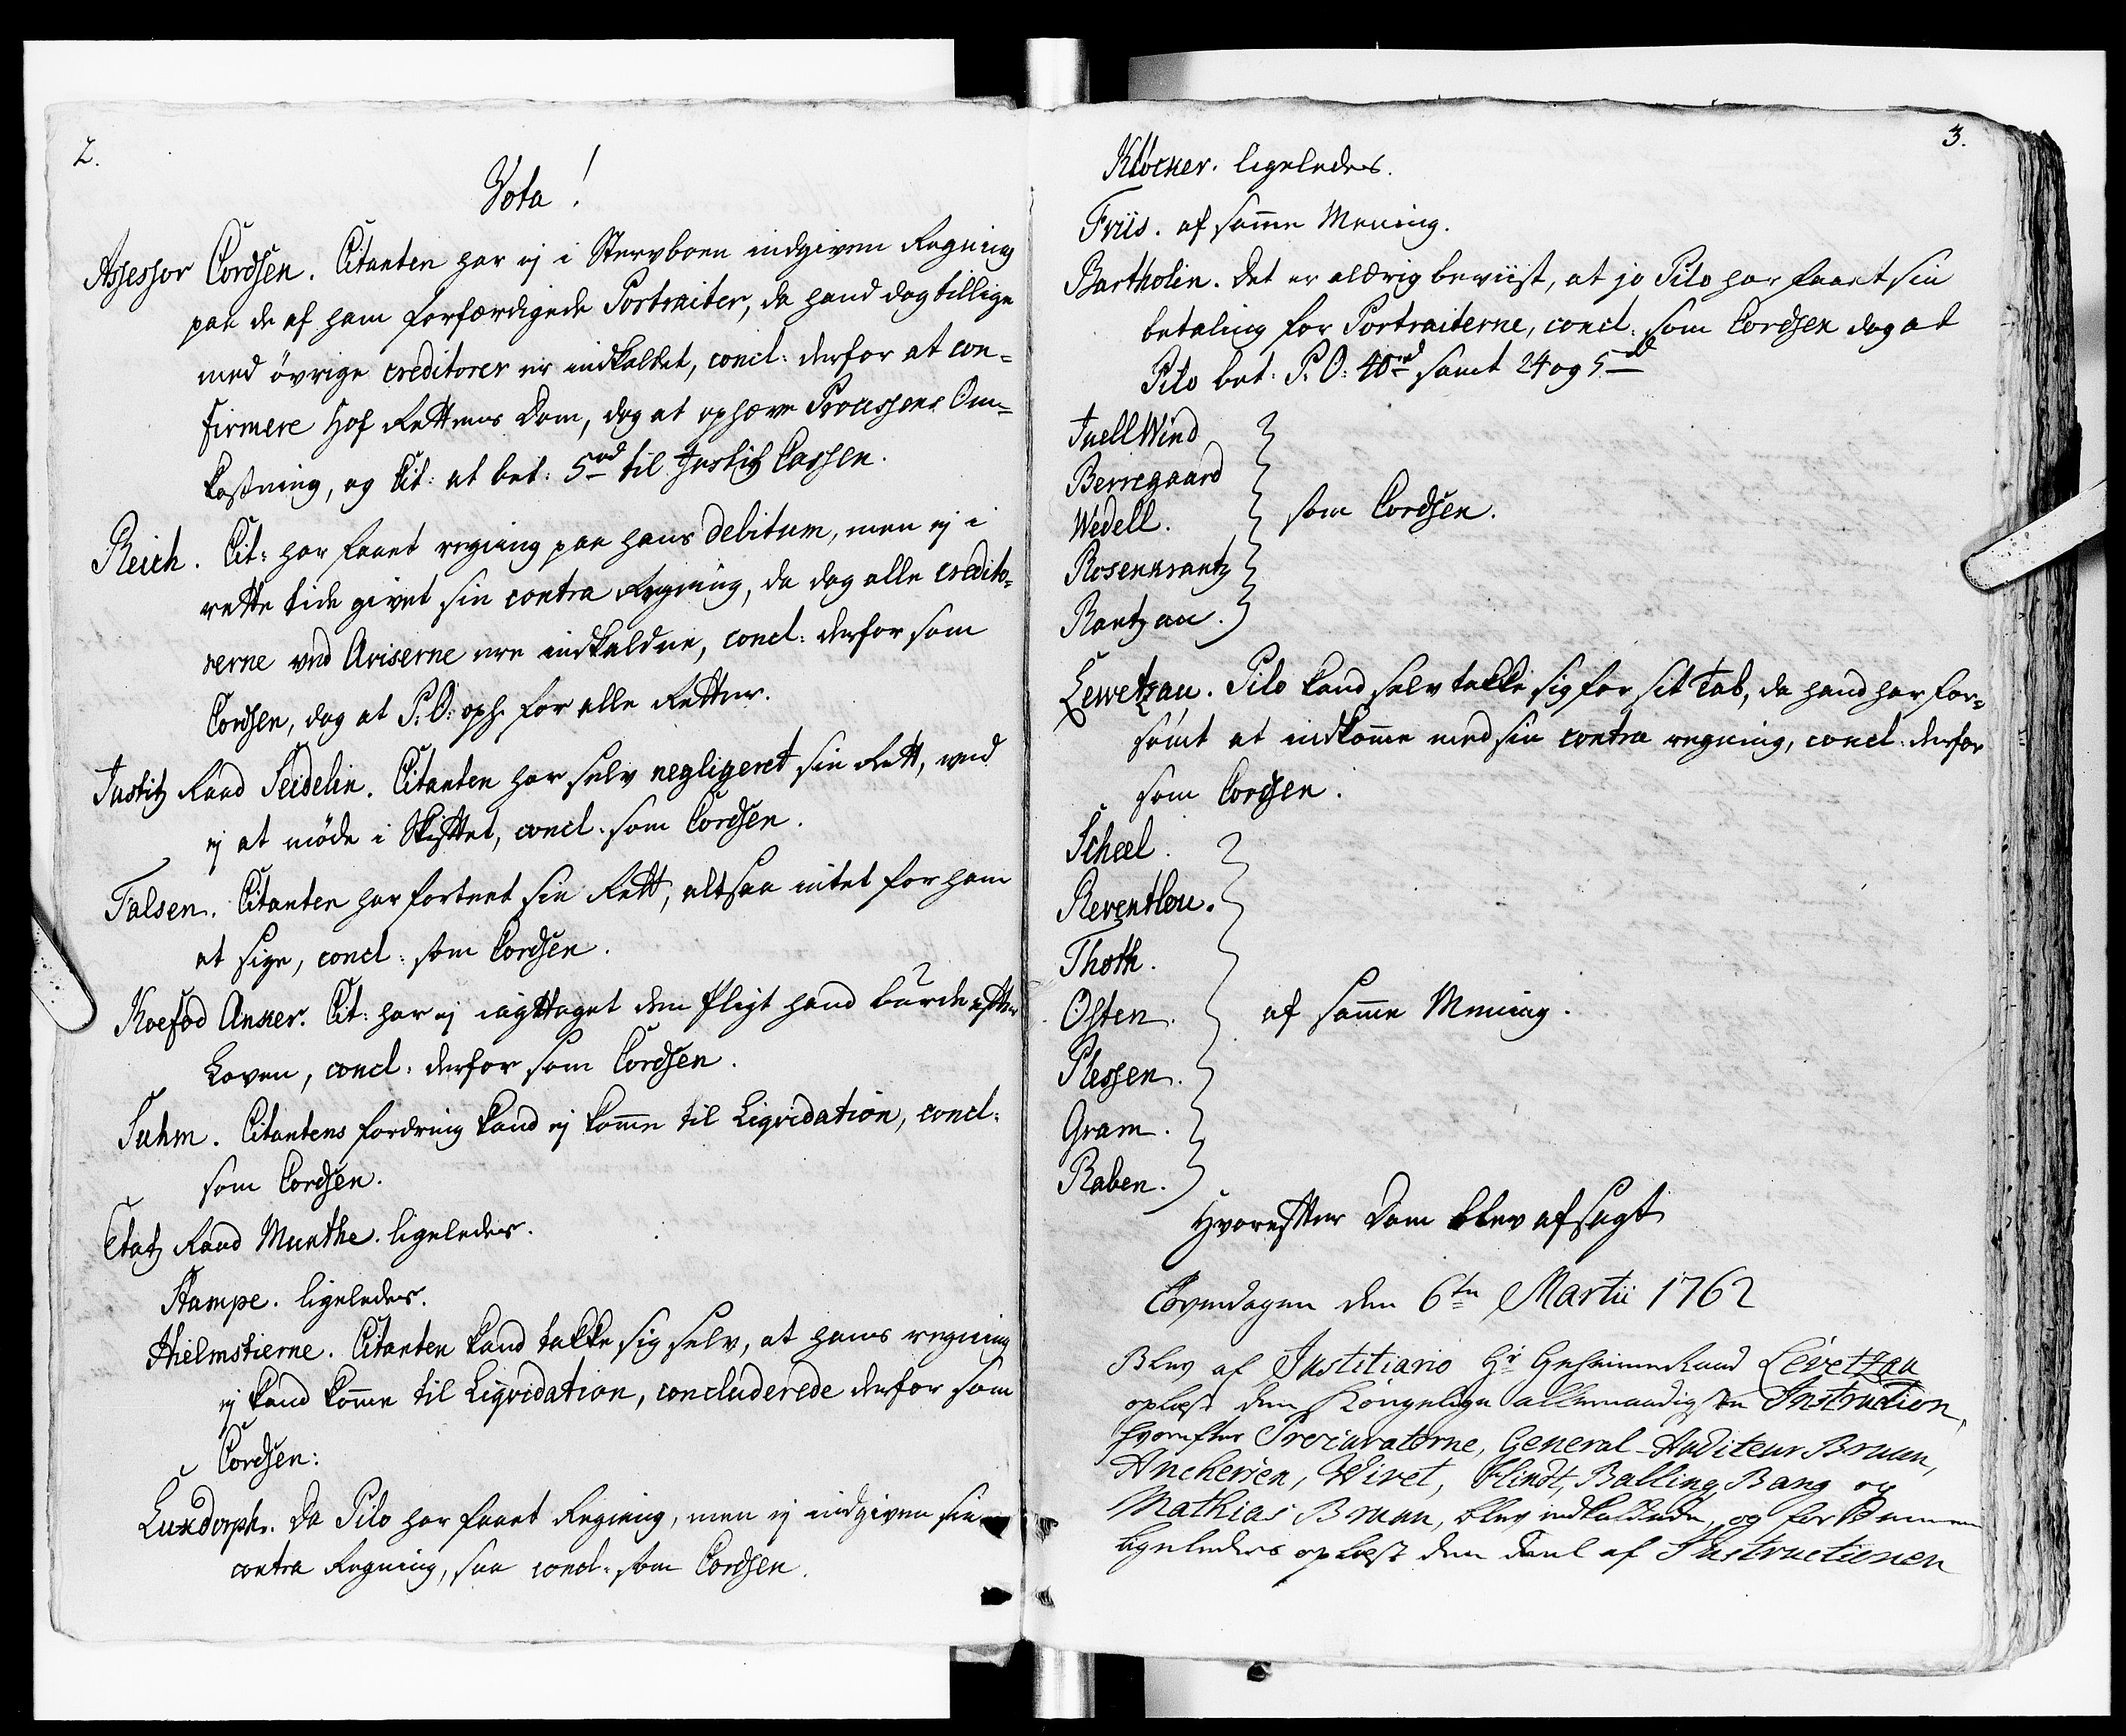 2.
Vota!
Assessor Cordsen. Citanten har ej i Stervboen indgiven Regning
paa de af ham forfærdigede Portraiter, da hand dog tillige
med övrige creditorer er indkaldet, concl: derfor at con=
firmere Hof Rettens Dom, dog at ophæve Processens Om=
kostning, og Cit: at bet: 5rd til Justitz Cassen.
Reich. Cit: har faaet regning paa hans debitum, men ej i
rette tide givet sin contra Regning, da dog alle credito=
rerne ved Aviserne ere indkaldne, concl: derfor som
Cordsen, dog at P:O: oph: for alle Retter.
Justitz Raad Seidelin. Citanten har selv negligeret sin Rett, ved
ej at möde i Skiftet, concl: som Cordsen.
Falsen. Citanten har fortaet sin Rett, altsaa intet for ham
at sige, concl: som Cordsen.
Koefod Anker. Cit: har ej iagttaget den Pligt hand burde efter
Loven, concl: derfor som Cordsen.
Suhm. Citantens fordring kand ej komme til Liqvidation, concl:
som Cordsen.
Etatz Raad Munthe. ligeledes.
Stampe. ligeledes.
Hielmstierne. Citanten kand takke sig selv, at hans regning
ej kand komme til Liqvidation, concluderede derfor som
Cordsen:
Luxdorph. Da Pilo har faaet Regning, men ej indgiven sin
contra Regning, saa concl: som Cordsen.
3.
Klöcker. ligeledes.
Friis. af samme Mening.
Bartholin. Det er aldrig beviist, at jo Pilo har faaet sin
betaling for Portraiterne, concl: som Cordsen dog at
Pilo bet: P:O: 40rd samt 24 og 5rd
Juell Wind
Berregaard
Wedell.
som Cordsen.
Rosenkrantz
Rantzau.
Lewetzau. Pilo kand selv takke sig for sit Tab, da hand har for=
sömt at indkomme med sin contra regning, concl: derfor
som Cordsen.
Scheel.
Reventlou.
Thott.
Osten.
af samme Mening.
Plessen.
Gram.
Raben.
Hvorefter Dom blev afsagt
Löverdagen den 6te Martii 1762
Blev af Justitiario Hr Geheimeraad Levetzau
oplæst den Kongelige allernaadigste Instruction,
hvorefter Procuratorne, General-Auditeur Bruun,
Anchersen, Wivet, Klindt, Balling, Bang og
Mathias Bruun, blev indkaldede, og for dennem
ligeledes oplæst den deel af Instructionen